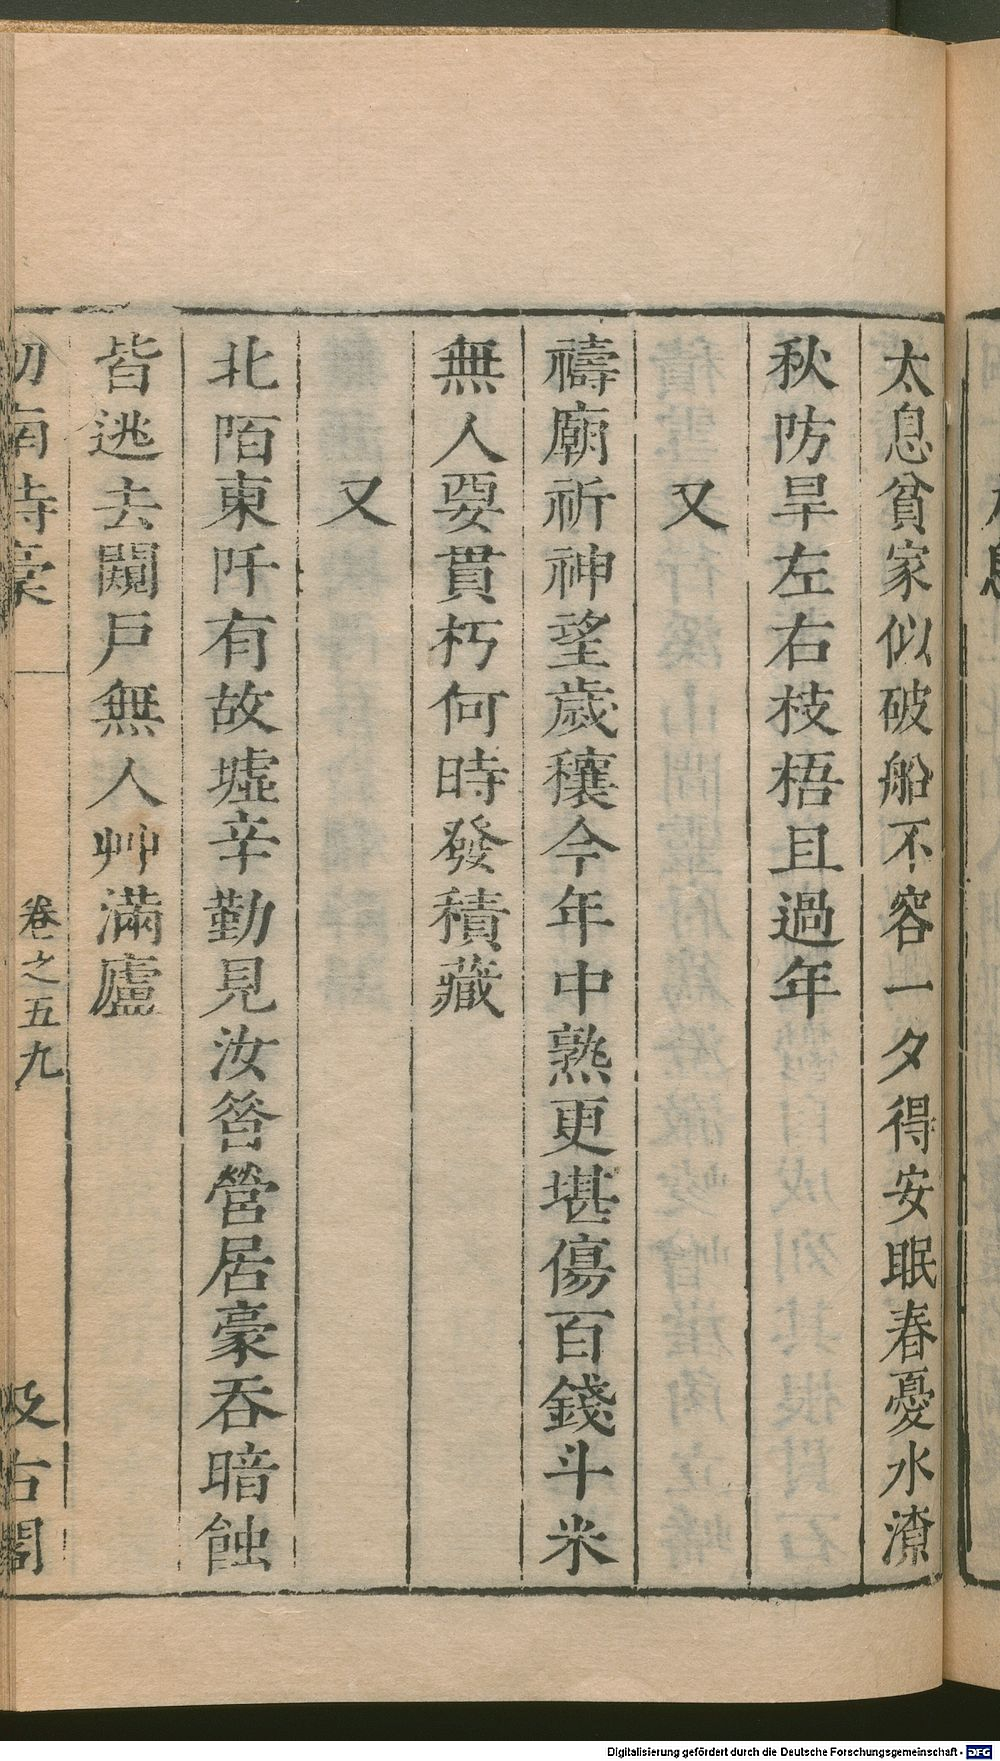 太息貧家似破船不容一夕得安眠春憂水潦
秋防旱左右枝梧且過年
又
禱廟祈神望歲穰今年中熟更堪傷百錢斗米
無人要貫朽何時發積藏
又
北陌東阡有故墟辛勤見汝昝營居豪呑暗蝕
皆逃去闚戶無人艸滿廬
劒南詩稾
卷之五九
汲古閣
Digitalisierung gefördert durch die Deutsche Forschungsgemeinschaft - DFG